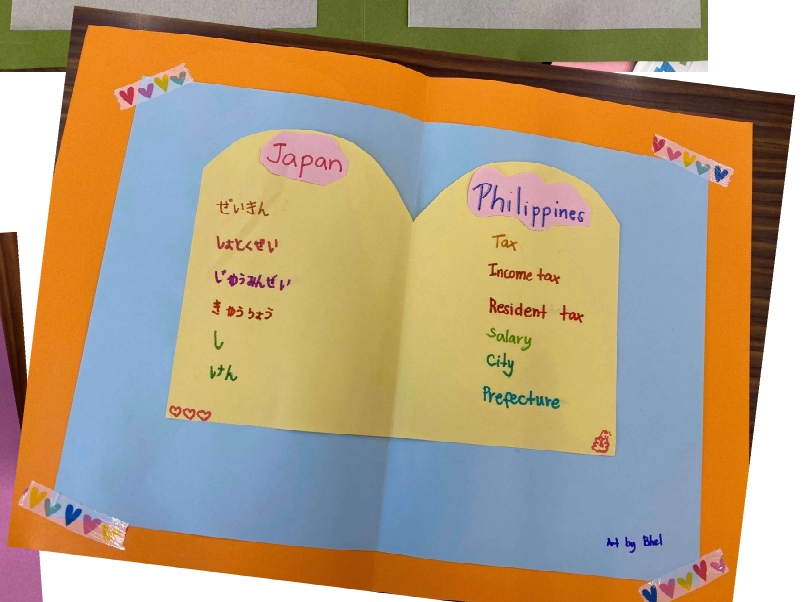 Japan
ぜいきん
しょとくぜい
じゅうみんぜい
きゅうりょう
し
けん
Philippines
Tax
Income tax
Resident tax
Salary
City
Prefecture
Art by Bhel